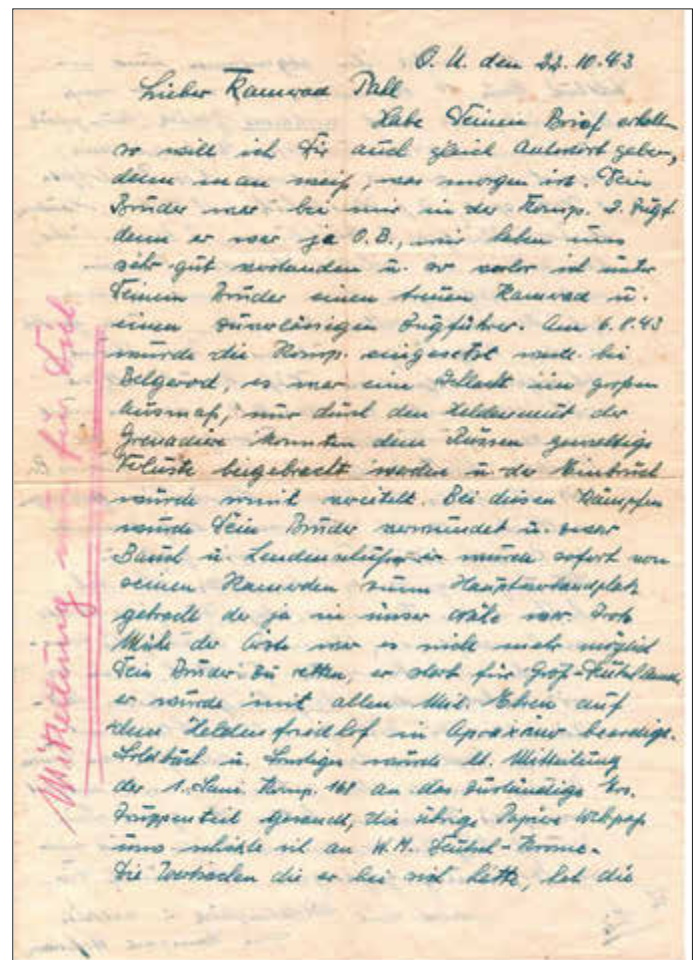 O. U. den 22.10.43
Lieber Kamerad Pall
Habe Deinen Brief erhalten
so will ich Dir auch gleich Antwort geben,
denn man weiß, was morgen ist. Dein
Bruder war bei mir in der Komp. 2. Zugf.
denn er war ja O.B., wir haben uns
sehr gut verstanden u. so verlor ich unter
Deinem Bruder einen treuen Kamerad u.
einen zuverlässigen Zugführer. Am 6.8.43
wurde die Komp. eingesetzt bei
Belgorod, es war eine Schlacht im großen
Ausmaß, nur durch den Heldenmut der
Grenadiere konnten dem Russen gewaltige
Verluste beigebracht werden u. der Einbruch
wurde somit vereitelt. Bei diesen Kämpfen
wurde Dein Bruder verwundet u. zwar
Bauch u. Lendenschuß er wurde sofort von
seinen Kameraden zum Hauptverbandplatz
gebracht der ja in unser Nähe war. Trotz
Mühe der Ärzte war es nicht mehr möglich
Dein Bruder zu retten, er starb für Groß-Deutschland
er wurde mit allen Mil. Ehren auf
dem Heldenfriedhof in beerdigt.
Soldbuch u. Sonstiges wurde lt. Mitteilung
der 1. Sani Komp. 168 an das zuständige Ers.
Truppenteil gesandt, die übrige Papiere Wehrpaß
usw schickte ich an W.M.
Die Wertsachen die er bei sich hatte, hat die
Mitteilung nur für Dich